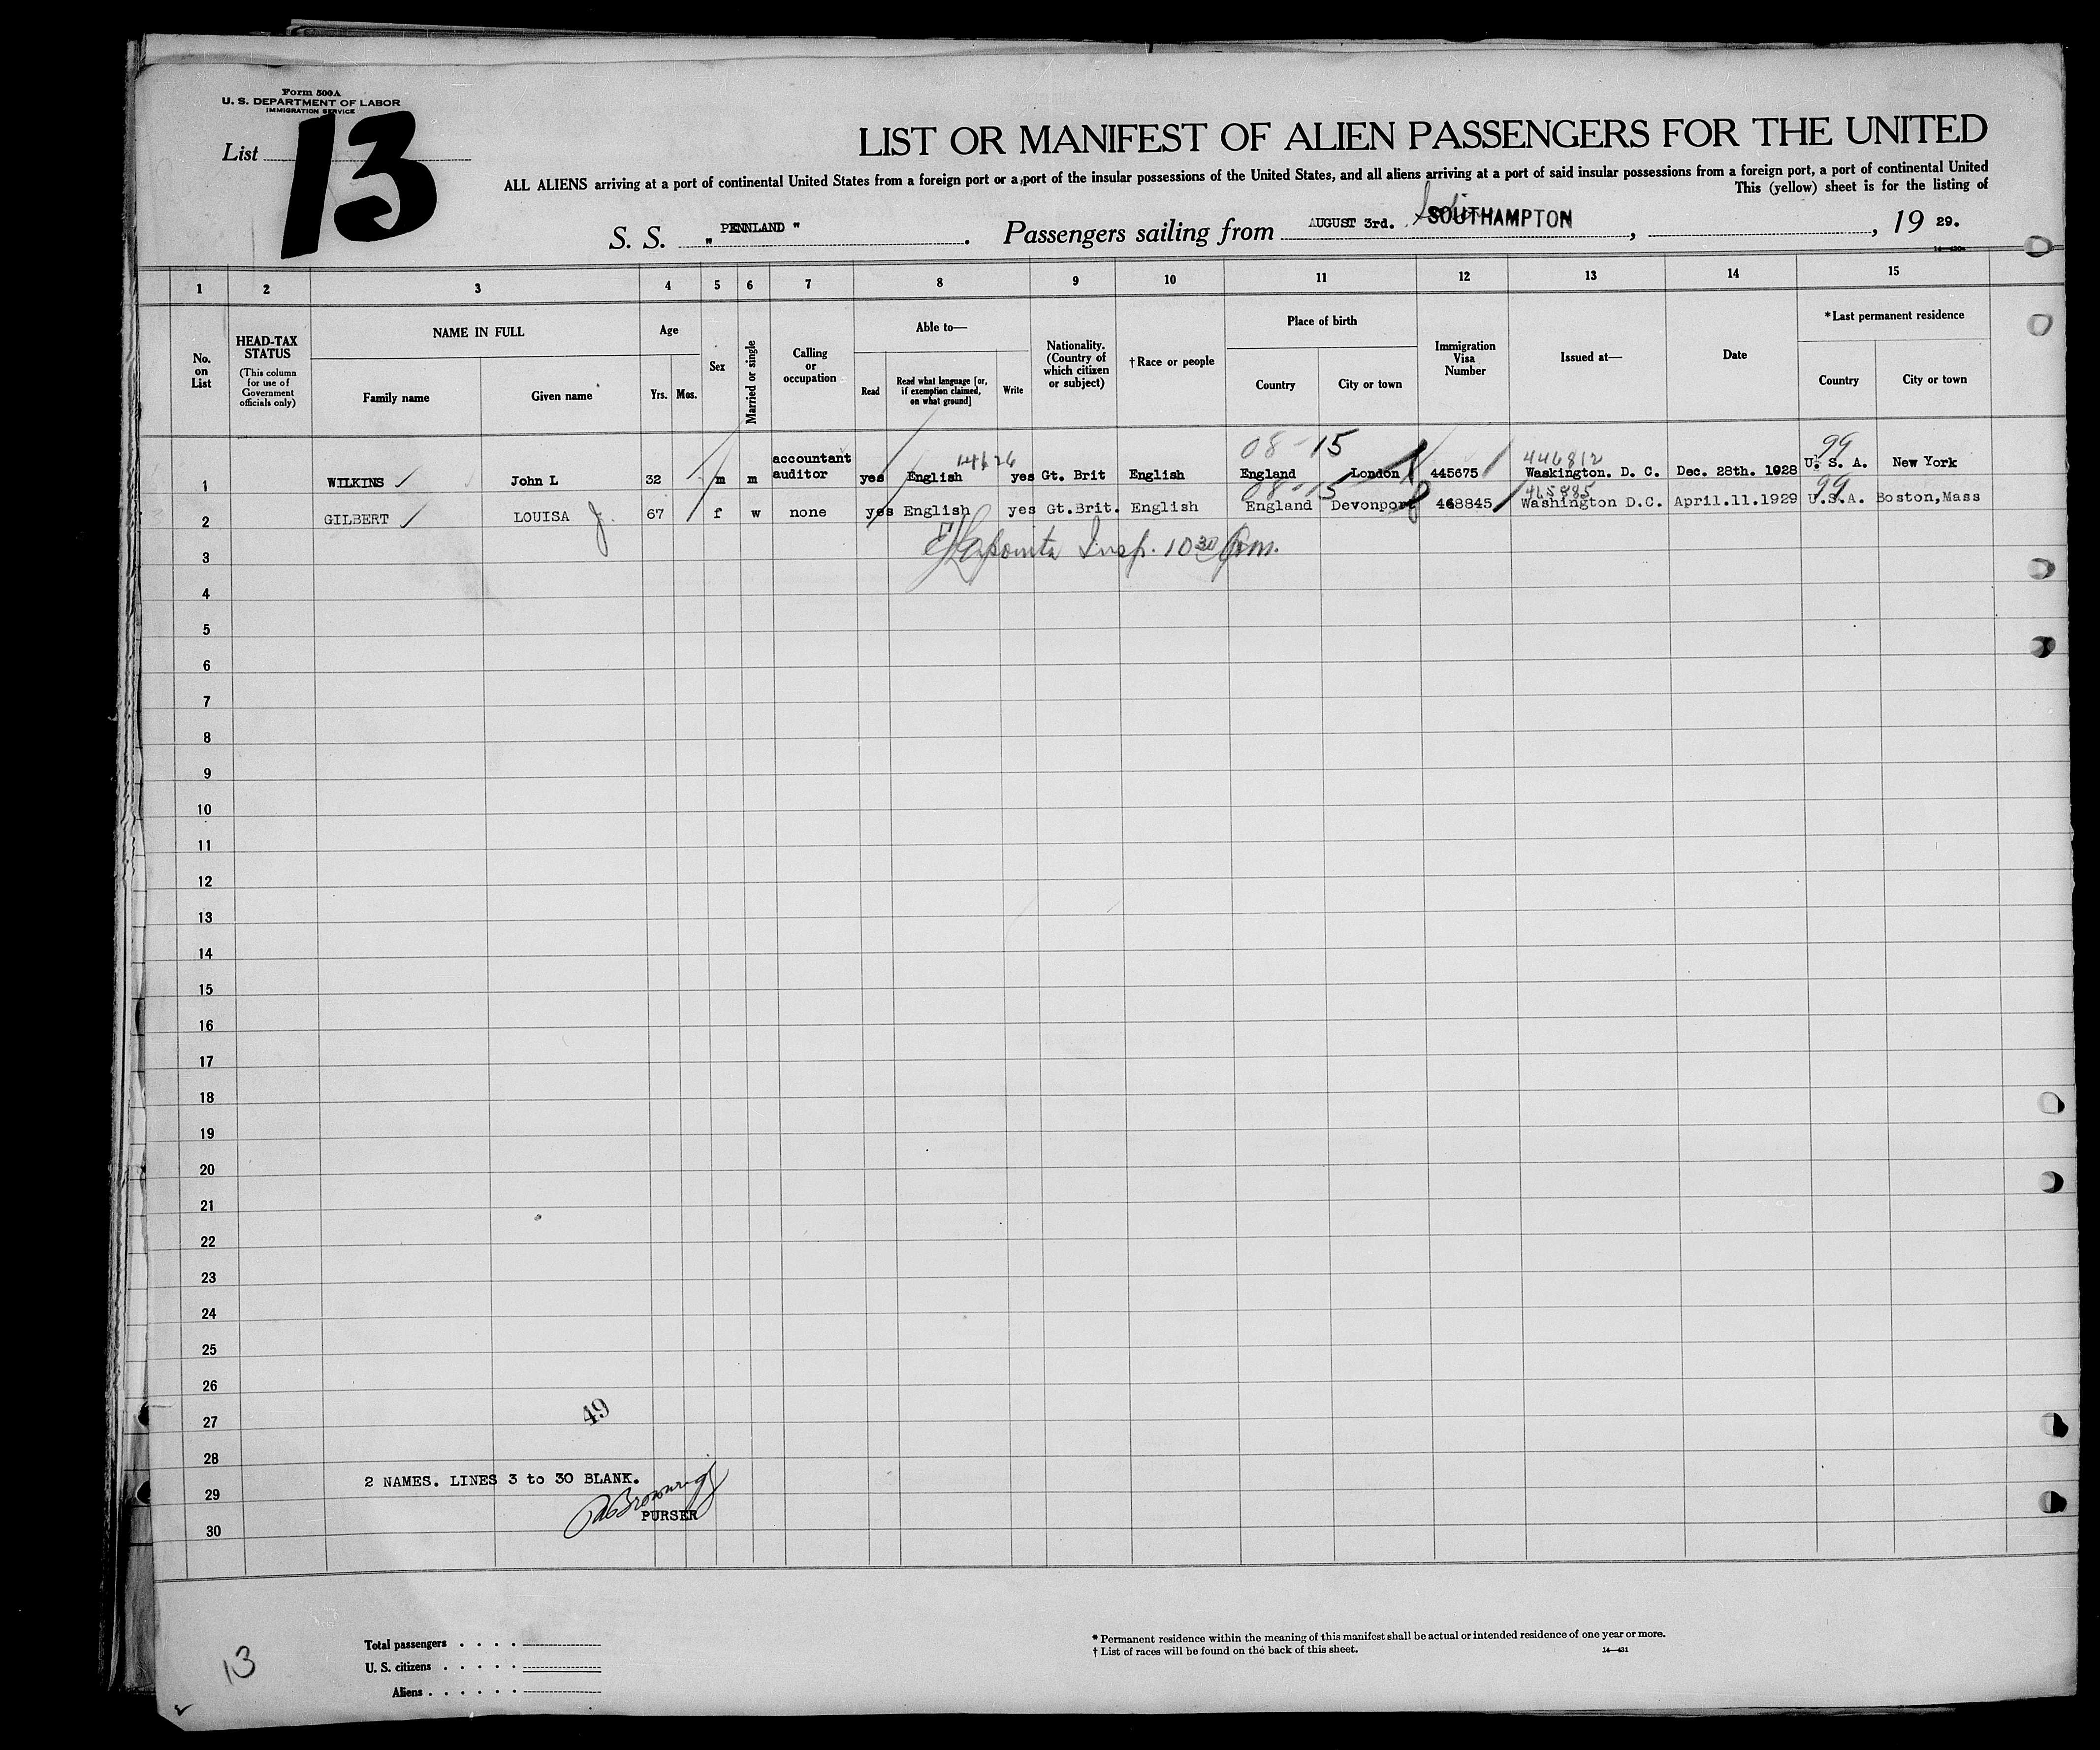 Form 500A
U. S. DEPARTMENT OF LABOR
IMMIGRATION SERVICE
List 13
LIST OR MANIFEST OF ALIEN PASSENGERS FOR THE UNITED
ALL ALIENS arriving at a port of continental United States from a foreign port or a port of the insular possessions of the United States, and all aliens arriving at a port of said insular possessions from a foreign port, a port of continental United
This (yellow) sheet is for the listing of
S. S. " PENNLAND " . Passengers sailing from AUGUST 3rd. SOUTHAMPTON , , 19 29.
1 2 3 4 5 6 7 8 9 10 11 12 13 14 15
No. on List
HEAD-TAX STATUS
(This column for use of Government officials only)
NAME IN FULL
Family name
Given name
Age
Yrs. Mos.
Sex
Married or single
Calling or occupation
Able to—
Read
Read what language [or, if exemption claimed, on what ground]
Write
Nationality. (Country of which citizen or subject)
† Race or people
Place of birth
Country
City or town
Immigration Visa Number
Issued at—
Date
* Last permanent residence
Country
City or town
08-15 446812 99
1 WILKINS John L 32 m m accountant auditor yes English yes Gt. Brit English England London 445675 Waskington. D. C. Dec. 28th. 1928 U. S. A. New York
08-15 465885 99
2 GILBERT LOUISA J. 67 f w none yes English yes Gt.Brit. English England Devonport 468845 Washington D.C. April.11.1929 U.S.A. Boston,Mass
3 Insp. 10 30 pm.
4
5
6
7
8
9
10
11
12
13
14
15
16
17
18
19
20
21
22
23
24
25
26
27
49
28
2 NAMES. LINES 3 to 30 BLANK.
29
PURSER
30
Total passengers
U. S. citizens
Aliens
13
* Permanent residence within the meaning of this manifest shall be actual or intended residence of one year or more.
† List of races will be found on the back of this sheet.
14—431